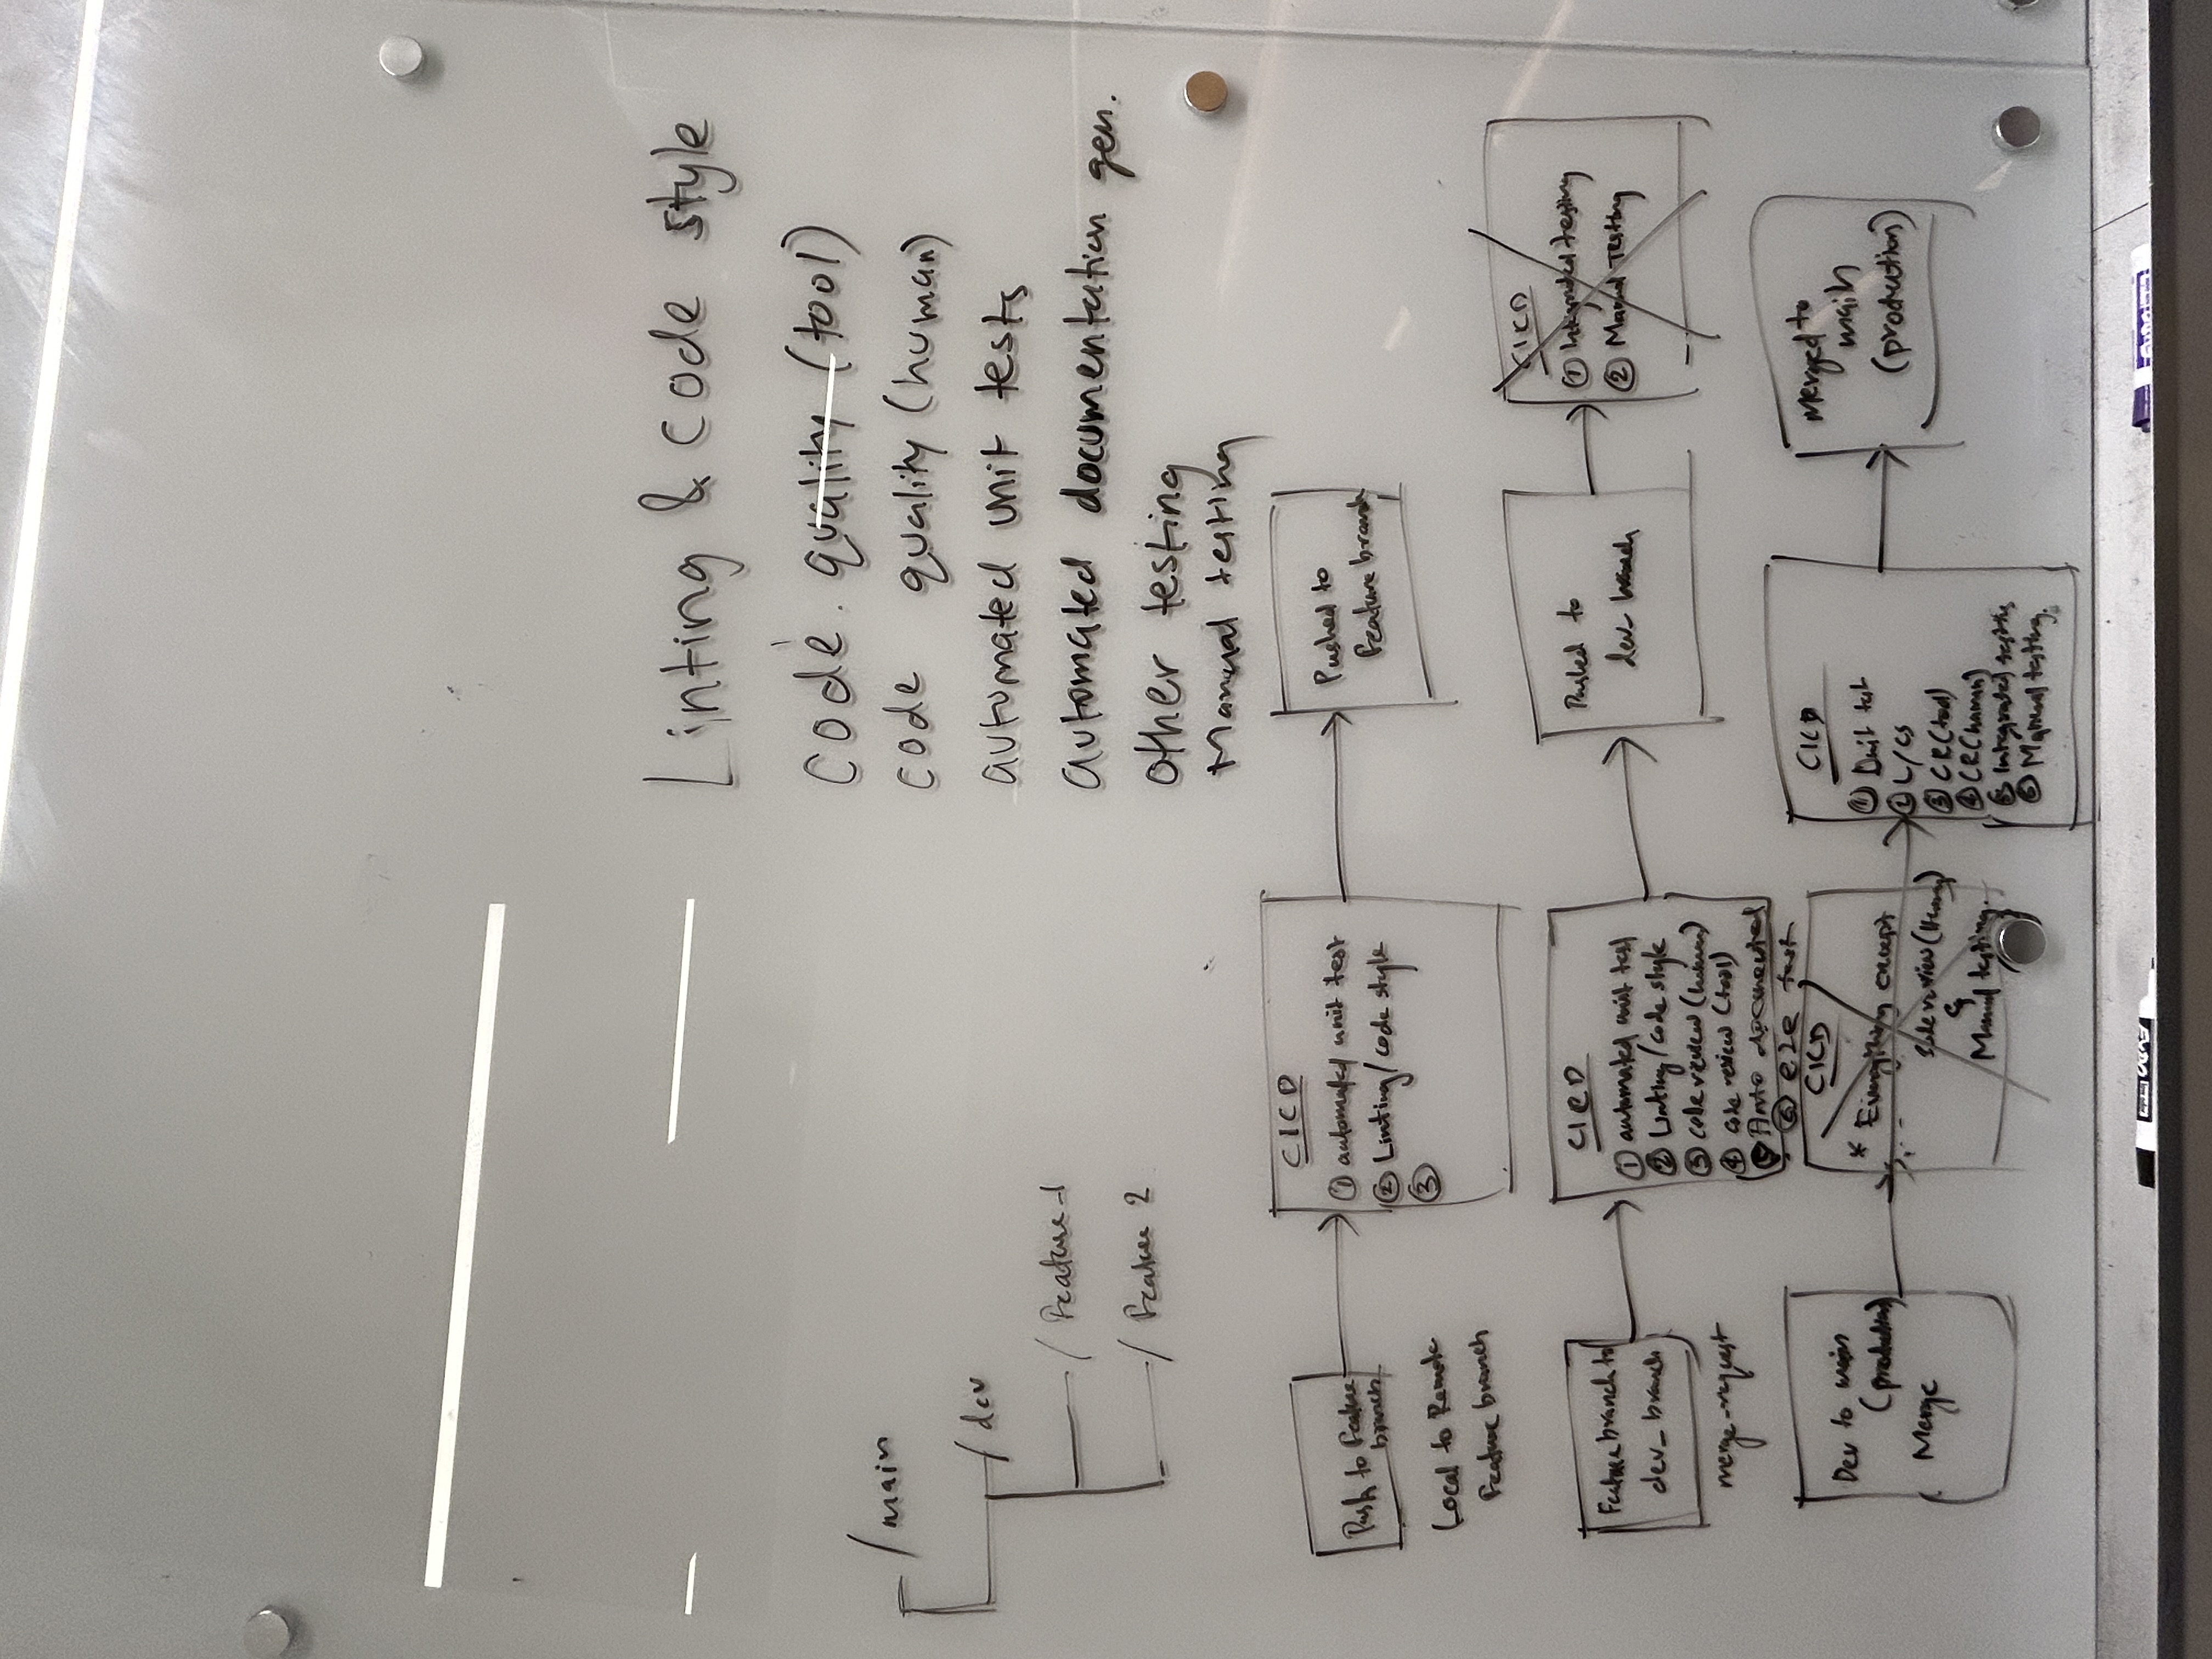 Linting & code style
code quality (tool)
code quality (human)
automated unit tests
automated documentation gen.
other testing
Manual testing
/main
/dev
/ Feature-1
/ Feature 2
Push to Feature
branch
Local to Remote
Feature branch
CICD
① automated unit test
② Linting/code style
③
Pushed to
Feature branch
Feature branch to
dev_branch
merge-request
CICD
① automated unit test
② Linting/code style
③ code review (human)
④ code review (tool)
⑤ Auto documented
⑥ e2e test
Pushed to
dev_branch
CICD
① Integrated testing
② Manual Testing
Dev to main
(production)
Merge
CICD
* Everything except
code review (Human)
&
Manual testing.
CICD
① Unit test
② L/CS
③ CR(tool)
④ CR(human)
⑤ Integrated testing
⑥ Manual testing.
Merged to
main
(production)
EXPO